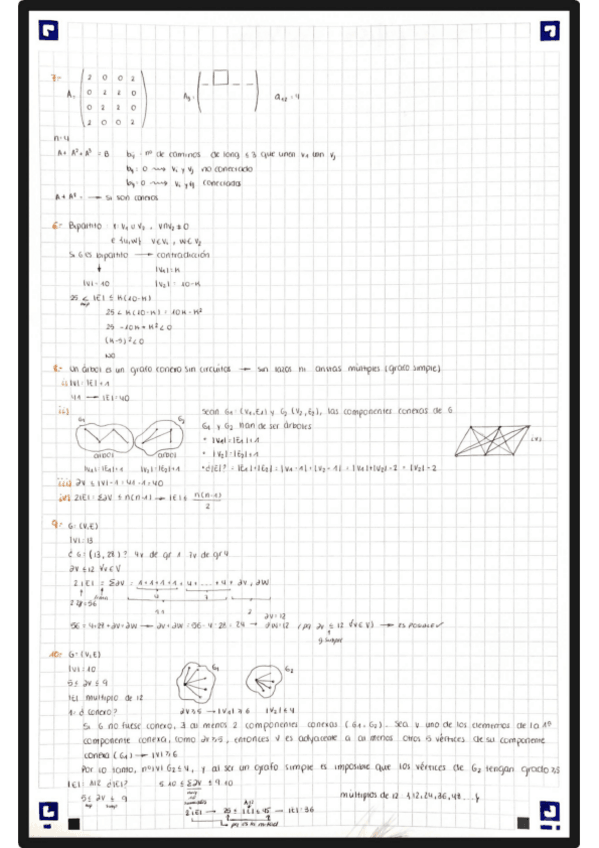 3:-
A = ( 2 0 0 2
0 2 2 0
0 2 2 0
2 0 0 2 )
n=4
A + A² + A³ = B   bij = nº de caminos de long ≤ 3 que unen vi con vj
bij = 0 → vi y vj no conectado
conectados
6:- Bipartito
Si G es bipartito → contradicción
|V| = 10
|V1| = K
|V2| = 10-K
25 < |E| ≤ K(10-K)
25 < K(10-K) = 10K-K²
25 - 10K + K² < 0
(K-5)² < 0
NO
8:- Un árbol es un grafo conexo sin circuitos → sin lazos ni aristas múltiples (grafo simple)
i) |V| = |E|+1
41 → |E|=40
ii) Sean G1 = (V1,E1) y G2 (V2,E2), las componentes conexas de G
G1 G2
G1 y G2 han de ser árboles
árbol árbol
• |V1| = |E1|+1
• |V2| = |E2|+1
|V1|=|E1|+1 |V2|=|E2|+1
• ¿|E|? = |E1|+|E2| = |V1|-1 + |V2|-1 = |V1|+|V2|-2 = |V|-2
iii) ∂v ≤ |V|-1 = 41-1 = 40
iv) 2|E| = Σ∂v ≤ n(n-1) → |E| ≤ n(n-1)/2
9:- G = (V,E)
|V| = 13
¿G = (13,28)? 4v de gr 1 7v de gr 4
∂v ≤ 12 ∀v∈V
2|E| = Σ∂v = 1+1+1+1+4+...+4+∂v+∂w
4 7 2
11
2·28=56
56 = 4+28+∂v+∂w → ∂v+∂w = 56-4-28 = 24 → ∂v=12 ∂w=12 (pq ∂v ≤ 12 ∀v∈V) → ES POSIBLE ✓
g. simple
10:- G = (V,E)
|V| = 10
5 ≤ ∂v ≤ 9
|E| múltiplo de 12
G1 G2
¿conexo? ∂v ≥ 5 → |V1| ≥ 6 |V2| ≤ 4
Si G no fuese conexo, ∃ al menos 2 componentes conexas (G1, G2). Sea v uno de los elementos de la 1ª
componente conexa, como ∂v≥5, entonces v es adyacente a al menos otros 5 vértices de su componente
conexa (G1) → |V| ≥ 6
Por lo tanto, nº|V| G2 ≤ 4, y al ser un grafo simple es imposible que los vértices de G2 tengan grado ≥5
5·10 ≤ Σ∂v ≤ 9·10
5 ≤ ∂v ≤ 9
múltiplos de 12 = {12,24,36,48...}
2|E| → 25 ≤ |E| ≤ 45 → |E| = 36